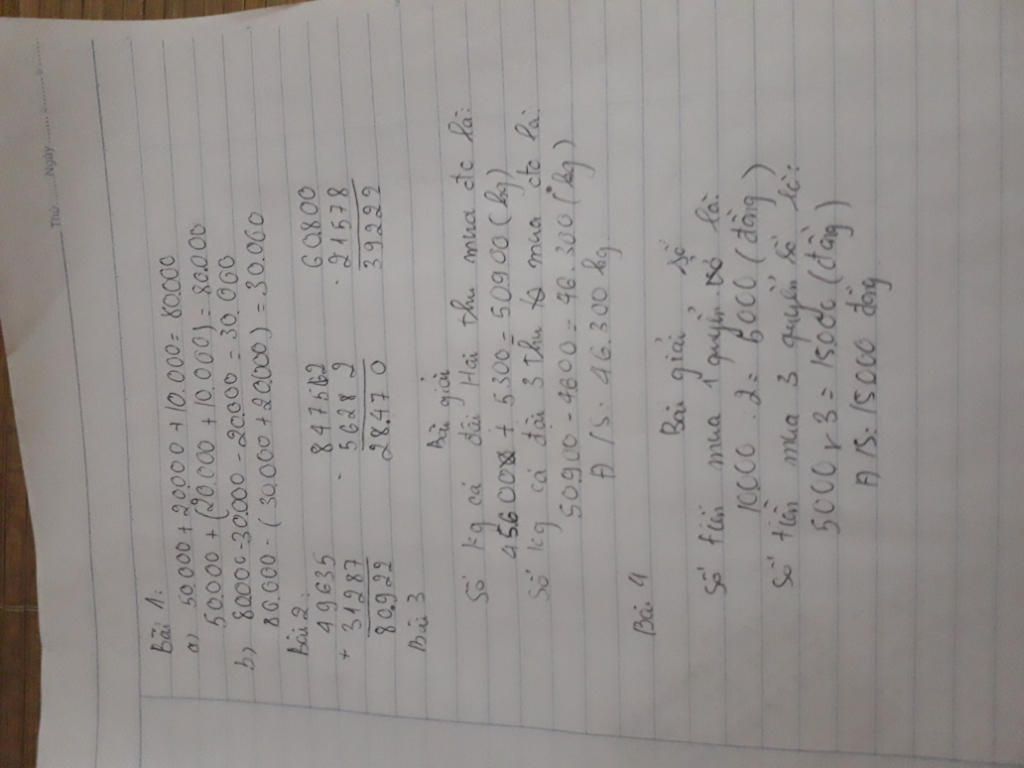 Thứ ........ Ngày ........
Bài 1:
a) 50000 + 20000 + 10.000 = 80000
50000 + (20.000 + 10.000) = 80.000
b) 80000 - 30000 - 20.000 = 30.000
80.000 - (30000 + 20000) = 30.000
Bài 2:
49635 84752 60800
+ 31287 - 56282 - 21578
80922 28470 39222
Bài 3
Bài giải
Số kg cá đội Hai thu mua đc là:
45600 + 5.300 = 50900 (kg)
Số kg cá đội 3 thu mua đc là:
50900 - 4600 = 46.300 (kg)
Đ/S: 46.300 kg
Bài 4
Bài giải
Số tiền mua 1 quyển sổ là
10000 : 2 = 5000 (đồng)
Số tiền mua 3 quyển sổ là:
5000 x 3 = 15000 (đồng)
Đ/S: 15000 đồng